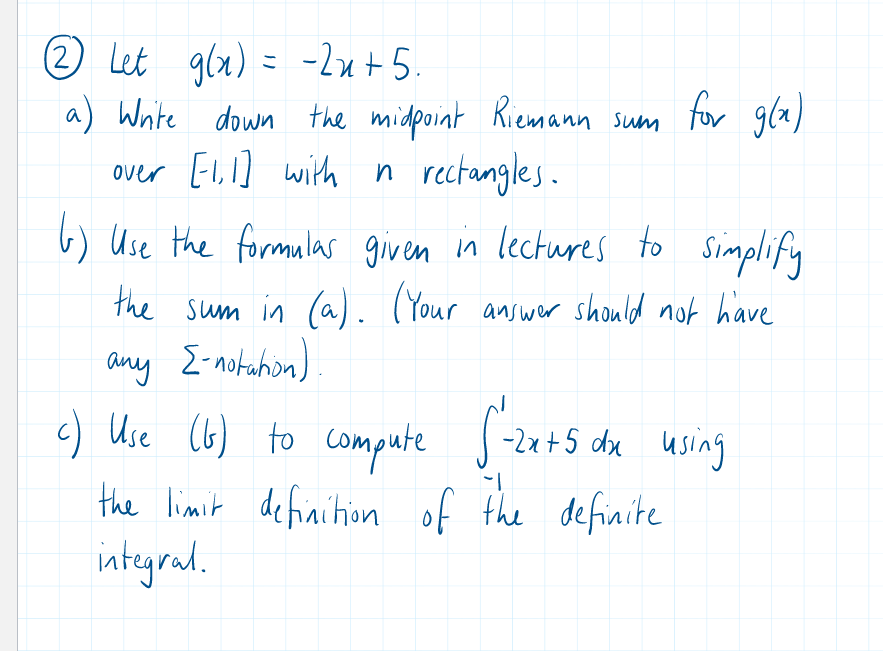 ② Let g(x) = -2x + 5.
a) Write down the midpoint Riemann sum for g(x)
over [-1, 1] with n rectangles.
b) Use the formulas given in lectures to simplify
the sum in (a). (Your answer should not have
any Σ-notation).
c) Use (b) to compute ∫₋₁¹ -2x+5 dx using
the limit definition of the definite
integral.